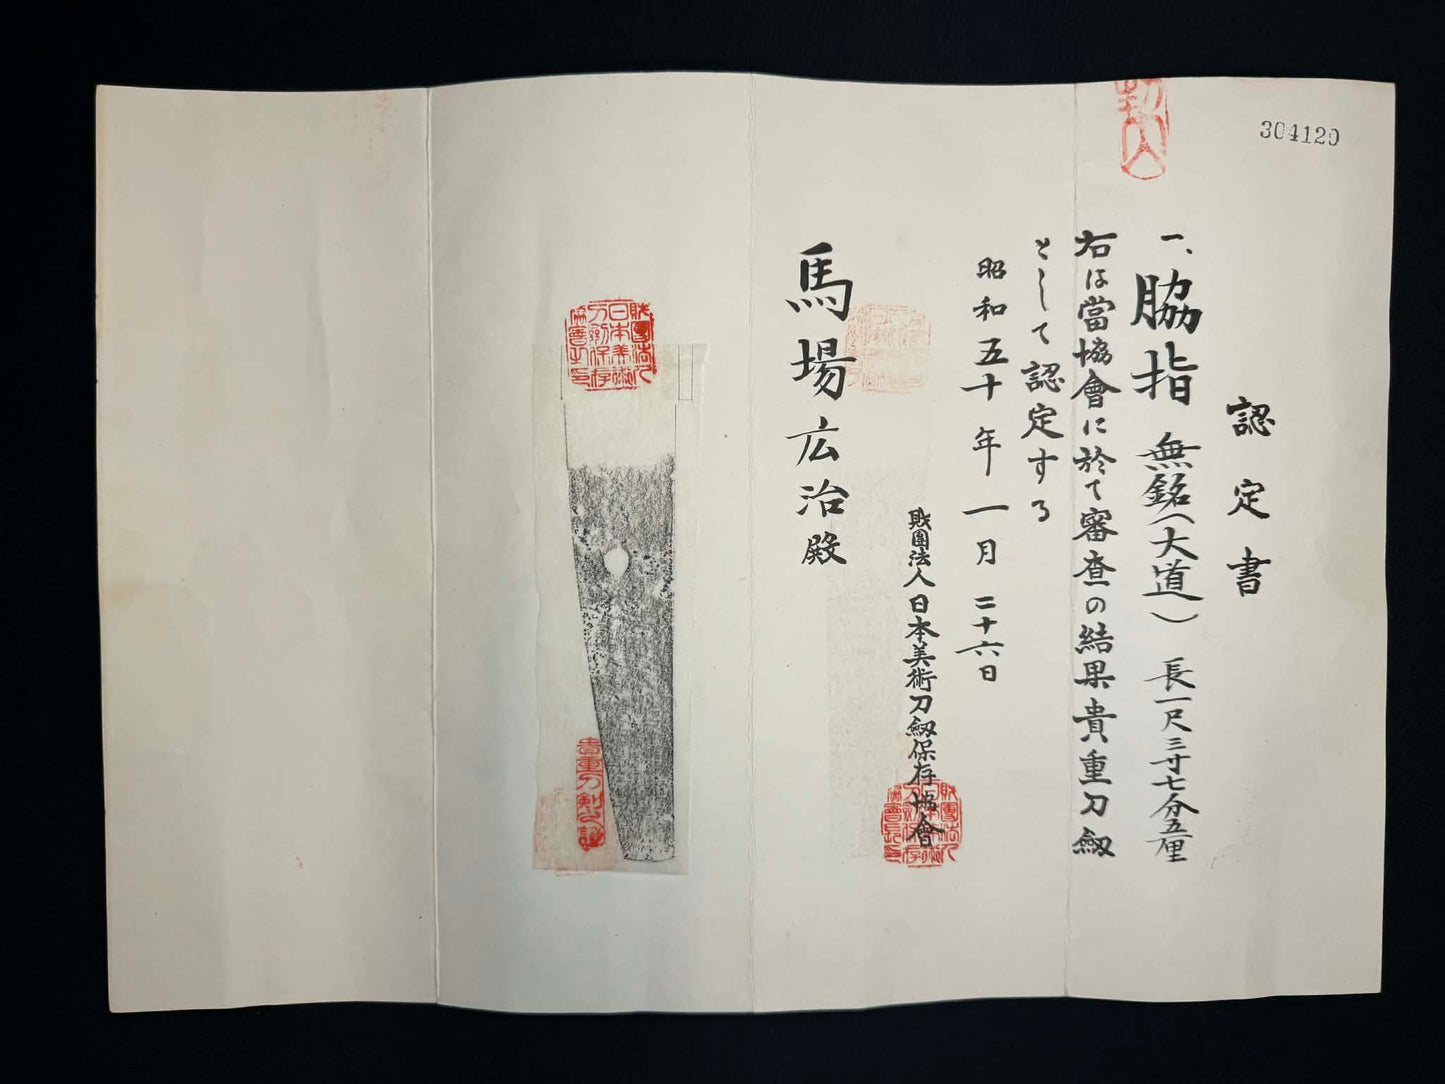 304120
認定書
一、脇指 無銘(大道) 長一尺三寸七分五厘
右は當協會に於て審査の結果貴重刀劔
として認定する
昭和五十年一月二十六日
財團法人日本美術刀劔保存協會
馬場広治殿
財團法人日本美術刀劍保存協會之印
貴重刀剣之證
財團法人日本美術刀劍保存協會長印